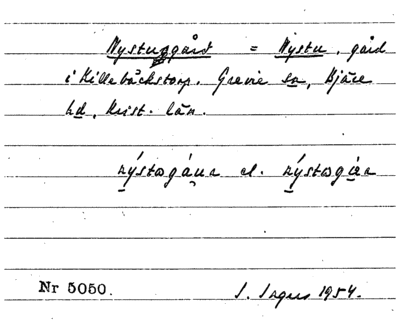 Nystugård = Nystu, gård
i Killebäckstorp. Grevie sn, Bjäre
hd, Krist. län.
el.
Nr 5050. S. Ingers 1954.